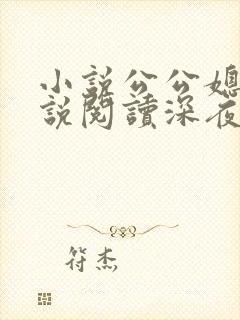 小説公公媳
説閱讀深夜
符杰